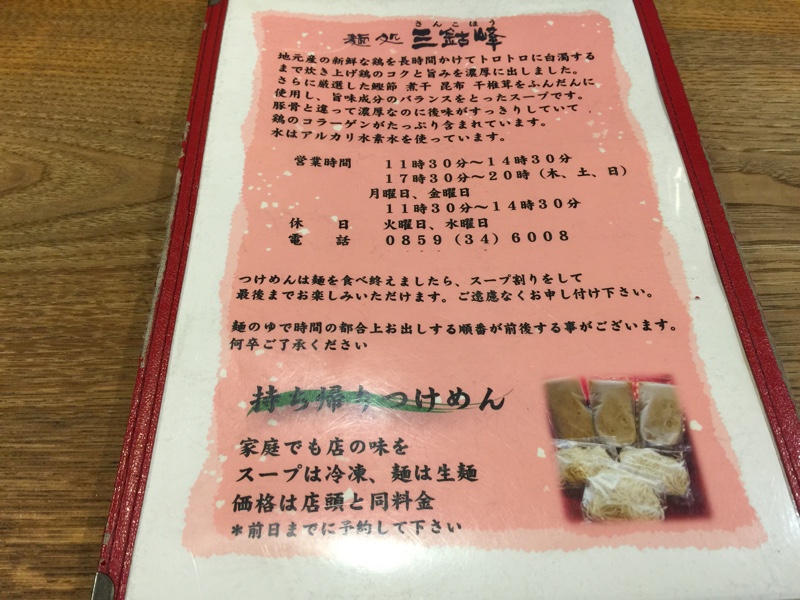 さんこほう
麺処 三鈷峰
地元産の新鮮な鶏を長時間かけてトロトロに白濁する
まで炊き上げ鶏のコクと旨みを濃厚に出しました。
さらに厳選した鰹節 煮干 昆布 干椎茸をふんだんに
使用し、旨味成分のバランスをとったスープです。
豚骨と違って濃厚なのに後味がすっきりしていて
鶏のコラーゲンがたっぷり含まれています。
水はアルカリ水素水を使っています。
営業時間 11時30分～14時30分
17時30分～20時(木、土、日)
月曜日、金曜日
11時30分～14時30分
休 日 火曜日、水曜日
電 話 0859(34)6008
つけめんは麺を食べ終えましたら、スープ割りをして
最後までお楽しみいただけます。ご遠慮なくお申し付け下さい。
麺のゆで時間の都合上お出しする順番が前後する事がございます。
何卒ご了承ください
持ち帰りつけめん
家庭でも店の味を
スープは冷凍、麺は生麺
価格は店頭と同料金
*前日までに予約して下さい